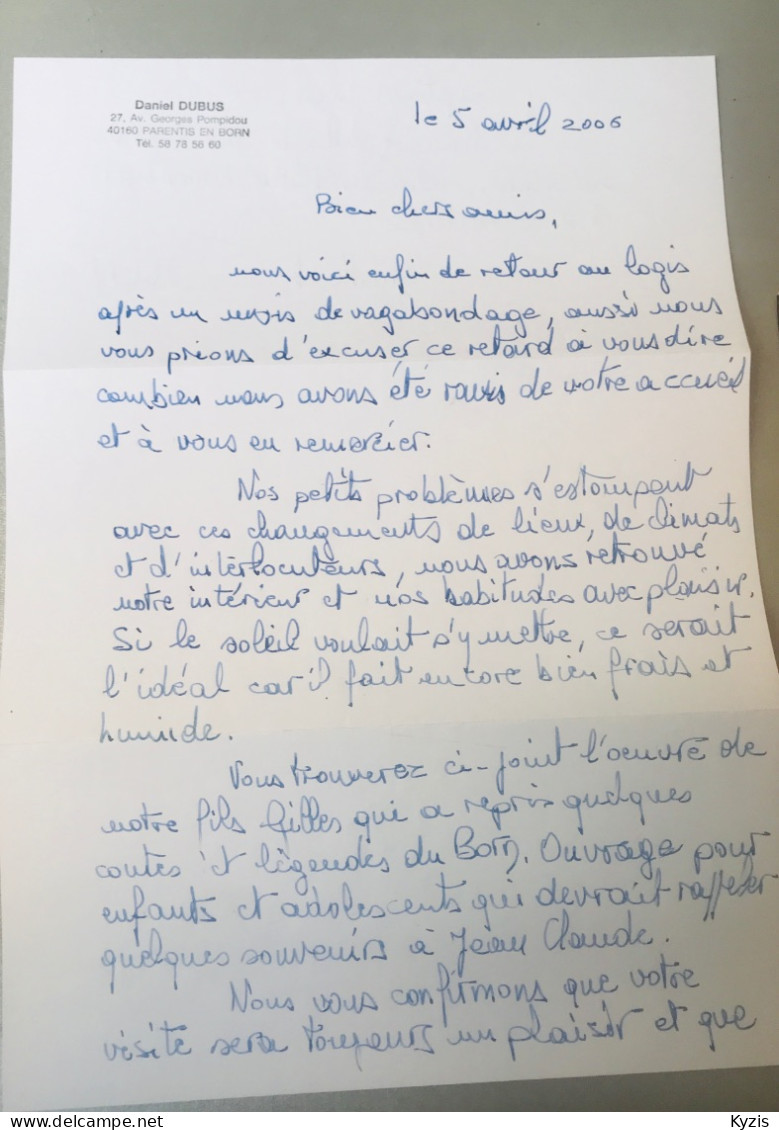 Daniel DUBUS
27, Av. Georges Pompidou
40160 PARENTIS EN BORN
Tél. 58 78 56 60
le 5 avril 2006
Bien chers amis,
nous voici enfin de retour au logis
après un mois de vagabondage, aussi nous
vous prions d'excuser ce retard à vous dire
combien nous avons été ravis de votre accueil
et à vous en remercier.
Nos petits problèmes s'estompent
avec ces changements de lieux, de climats
et d'interlocuteurs, nous avons retrouvé
notre intérieur et nos habitudes avec plaisir.
Si le soleil voulait s'y mettre, ce serait
l'idéal car il fait encore bien frais et
humide.
Vous trouverez ci-joint l'oeuvre de
notre fils Gilles qui a repris quelques
contes et légendes du Born. Ouvrage pour
enfants et adolescents qui devrait rappeler
quelques souvenirs à Jean Claude.
Nous vous confirmons que votre
visite sera toujours un plaisir et que
Kyzis